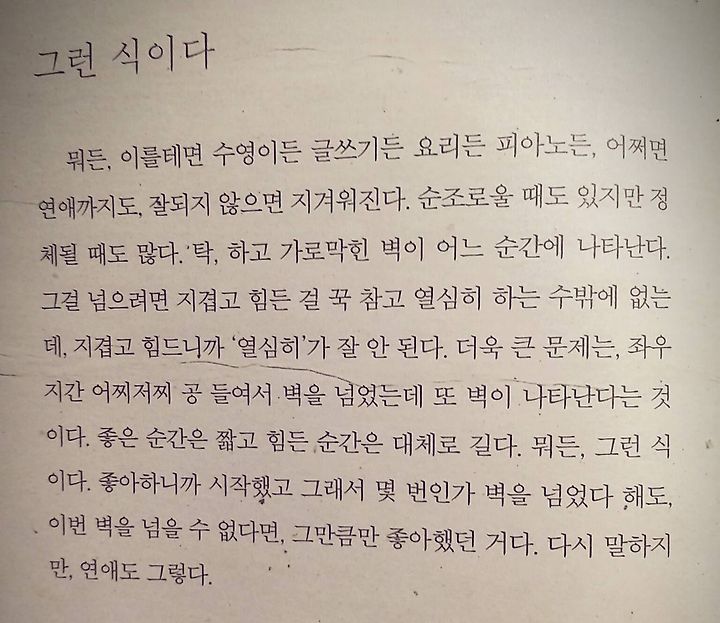 그런 식이다
뭐든, 이를테면 수영이든 글쓰기든 요리든 피아노든, 어쩌면
연애까지도, 잘되지 않으면 지겨워진다. 순조로울 때도 있지만 정
체될 때도 많다. '탁, 하고 가로막힌 벽이 어느 순간에 나타난다.
그걸 넘으려면 지겹고 힘든 걸 꾹 참고 열심히 하는 수밖에 없는
데, 지겹고 힘드니까 '열심히'가 잘 안 된다. 더욱 큰 문제는, 좌우
지간 어찌저찌 공 들여서 벽을 넘었는데 또 벽이 나타난다는 것
이다. 좋은 순간은 짧고 힘든 순간은 대체로 길다. 뭐든, 그런 식
이다. 좋아하니까 시작했고 그래서 몇 번인가 벽을 넘었다 해도,
이번 벽을 넘을 수 없다면, 그만큼만 좋아했던 거다. 다시 말하지
만, 연애도 그렇다.